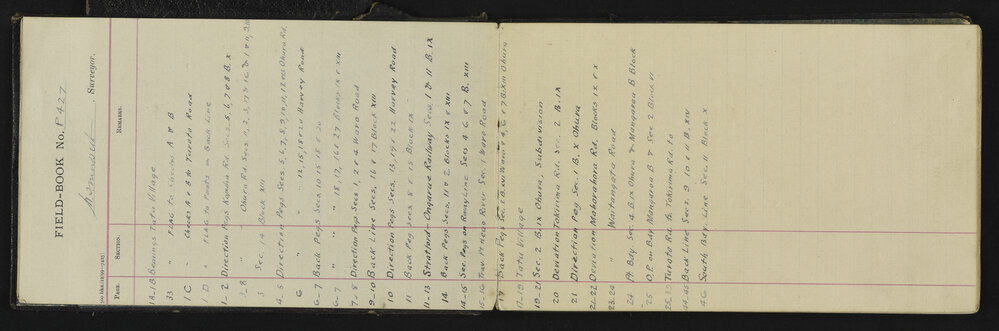 FIELD-BOOK No. P427
, Surveyor.
Page. Section. Remarks.
1A-1B Bearings Tatu Village
33 " FLAG to Checks A & B
1C " Checks A & B to Tururu Road
1D " FLAG to
1-2 Direction Pegs Road Secs. 5, 6, 7 & 8 B. X
-8 " " Ohura Rd. Secs.
3 Sec. 14 Block XIII
4-5 Direction Pegs Secs. 5, 6, 7, 8, 9, 10, 11, 12 Ohura Rd.
6 " " 12, 15, 18 & 20 Harvey Road
6-7 Back Pegs Secs. 10 15 18 & 20
6-7 " " 15, 17, 16 & 27 Blocks IX & XIII
7-8 Direction Pegs Secs 1, 2 & 4 Waro Road
9-10 Back Line Secs, 16 & 17 Block XIII
10 Direction Pegs Secs, 13, 19 & 22 Harvey Road
11 Back Peg Secs 8 & 15 Block IX
11-13 Stratford-Ongarue Railway Secs, 1 & 11 B. IX
14 Back Pegs Secs, 11 & 2 Blocks IX & XIII
14-15 Sec. Pegs on Line Secs 4 6 & 7 B. XIII
15-16 River Sec. 1 Waro Road
17 Back Pegs Sec. 1 & 4, 6, 7 B. XIII Ohura
17-19 Tatu Village
19-21 Sec. 2 B. IX Ohura, Subdivision
20 Deviation Tokirima Rd. Sec. 2 B. IX
21 Direction Peg Sec. 1 B. X Ohura
21-22 Deviation Mokorahora Rd. Blocks IX & X
23-24 " Waitangata Road
24 Pt Bdy. Sec. 4 B. IX Ohura & Mangaroa B Block
25 O.P on Bdy Mangaroa B & Sec 2 Block VI
25-33 Tururu Rd. & Tokirima Rd to
44-45 Back Line Secs. 9 10 & 11 B. XIV
46 South Bdy. Line Sec. 11 Block X